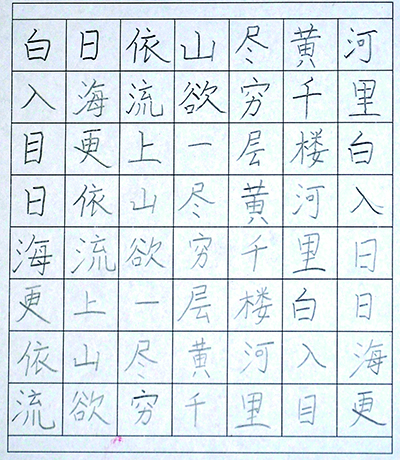 白日依山尽黄河
入海流欲穷千里
目更上一层楼白
日依山尽黄河入
海流欲穷千里日
更上一层楼白日
依山尽黄河入海
流欲穷千里目更